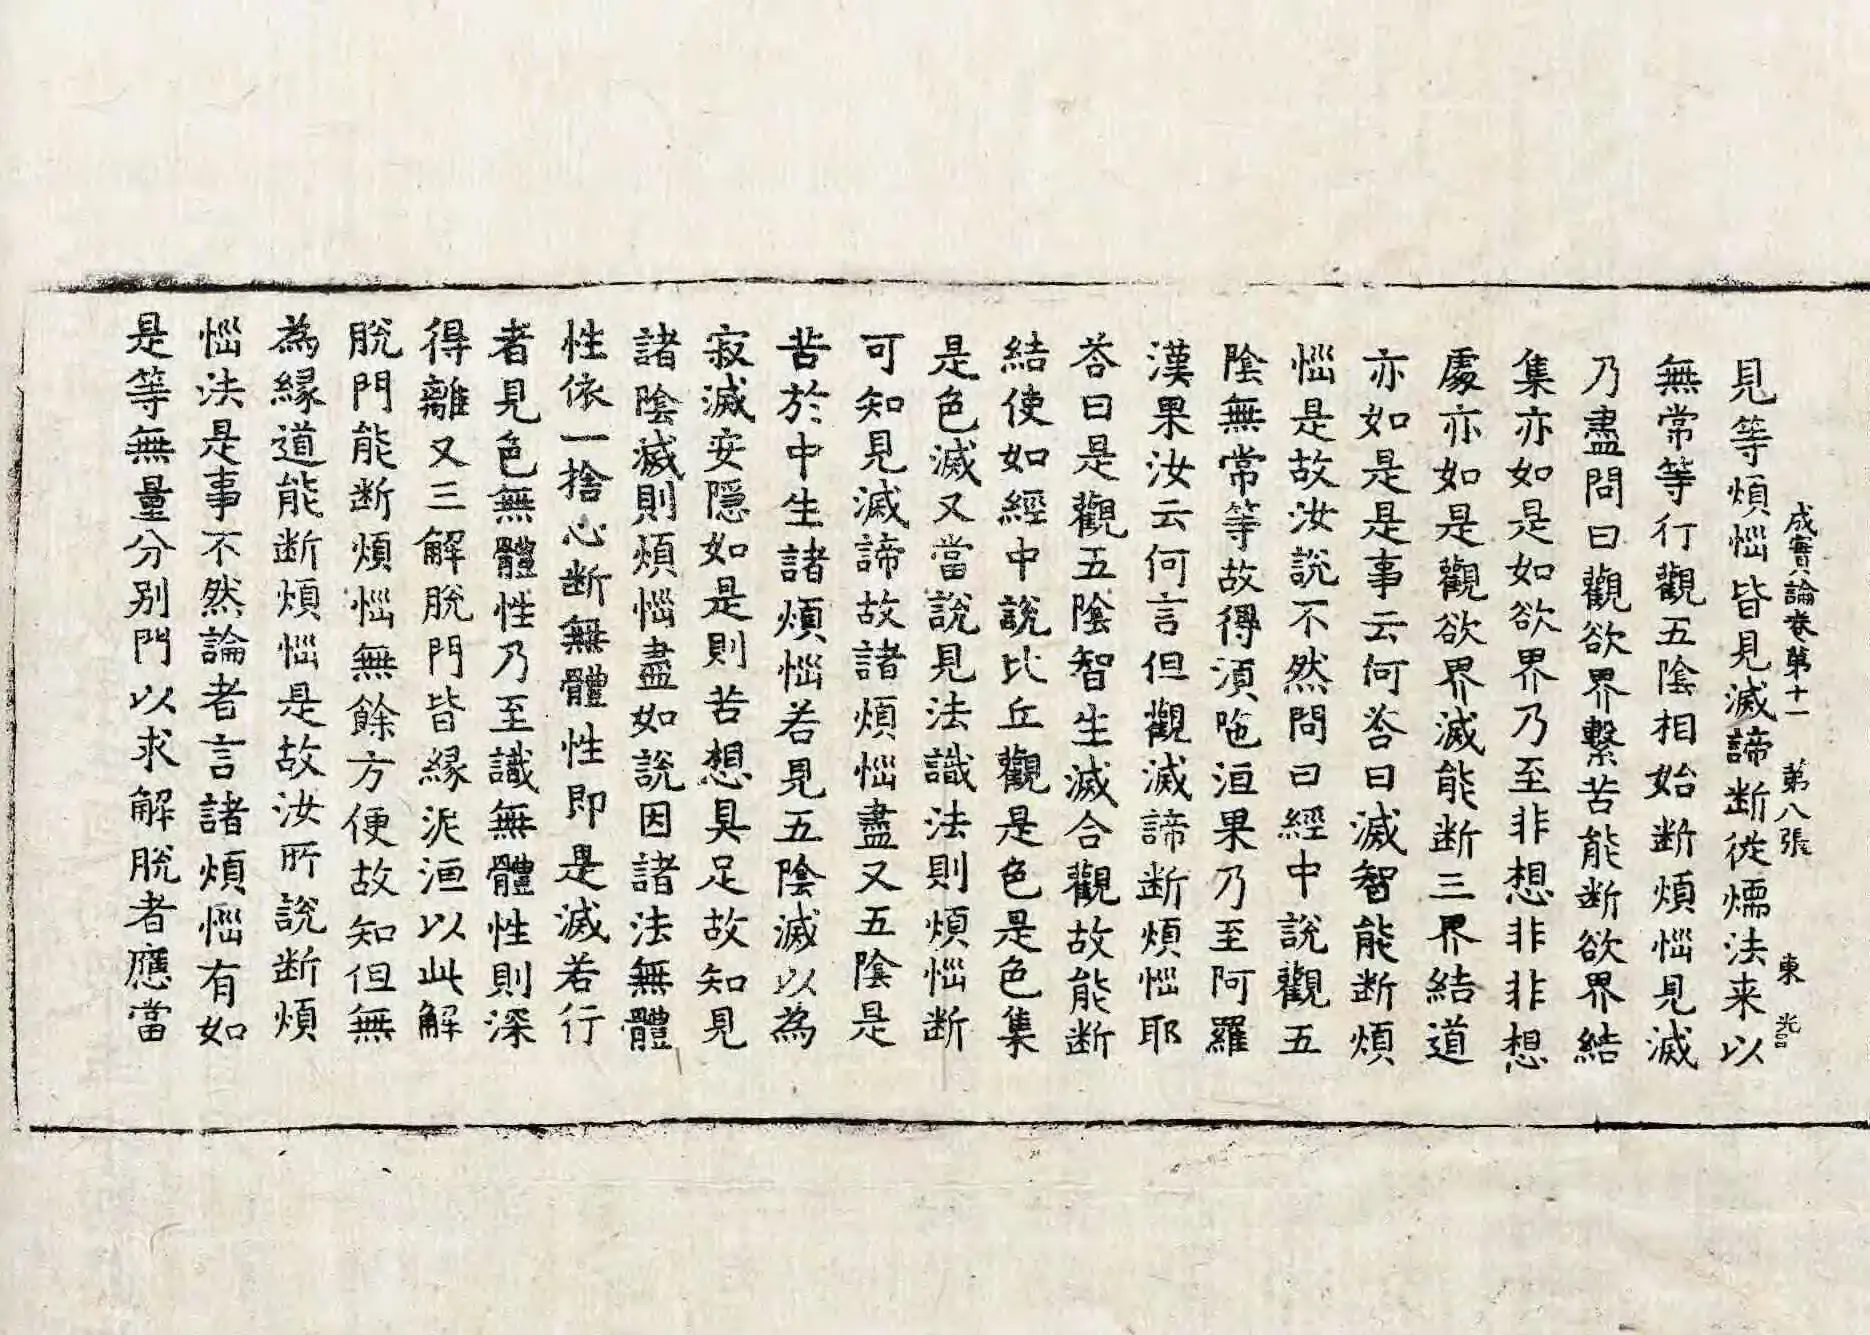 成實論卷第十一 第八張 東 光
見等煩惱皆見滅諦断從燸法来以
無常等行觀五陰相始断煩惱見滅
乃盡問曰觀欲界繫苦能断欲界結
集亦如是如欲界乃至非想非非想
處亦如是觀欲界滅能断三界結道
亦如是是事云何荅曰滅智能断煩
惱是故汝說不然問曰經中說觀五
陰無常等故得湏陁洹果乃至阿羅
漢果汝云何言但觀滅諦断煩惱耶
荅曰是觀五陰智生滅合觀故能断
結使如經中說比丘觀是色是色集
是色滅又當說見法識法則煩惱断
可知見滅諦故諸煩惱盡又五陰是
苦於中生諸煩惱若見五陰滅以為
寂滅安隠如是則苦想具足故知見
諸陰滅則煩惱盡如說因諸法無體
性依一捨心断無體性即是滅若行
者見色無體性乃至識無體性則深
得離又三解脫門皆緣泥洹以此解
脫門能断煩惱無餘方便故知但無
為緣道能断煩惱是故汝所說断煩
惱法是事不然論者言諸煩惱有如
是等無量分別門以求解脫者應當